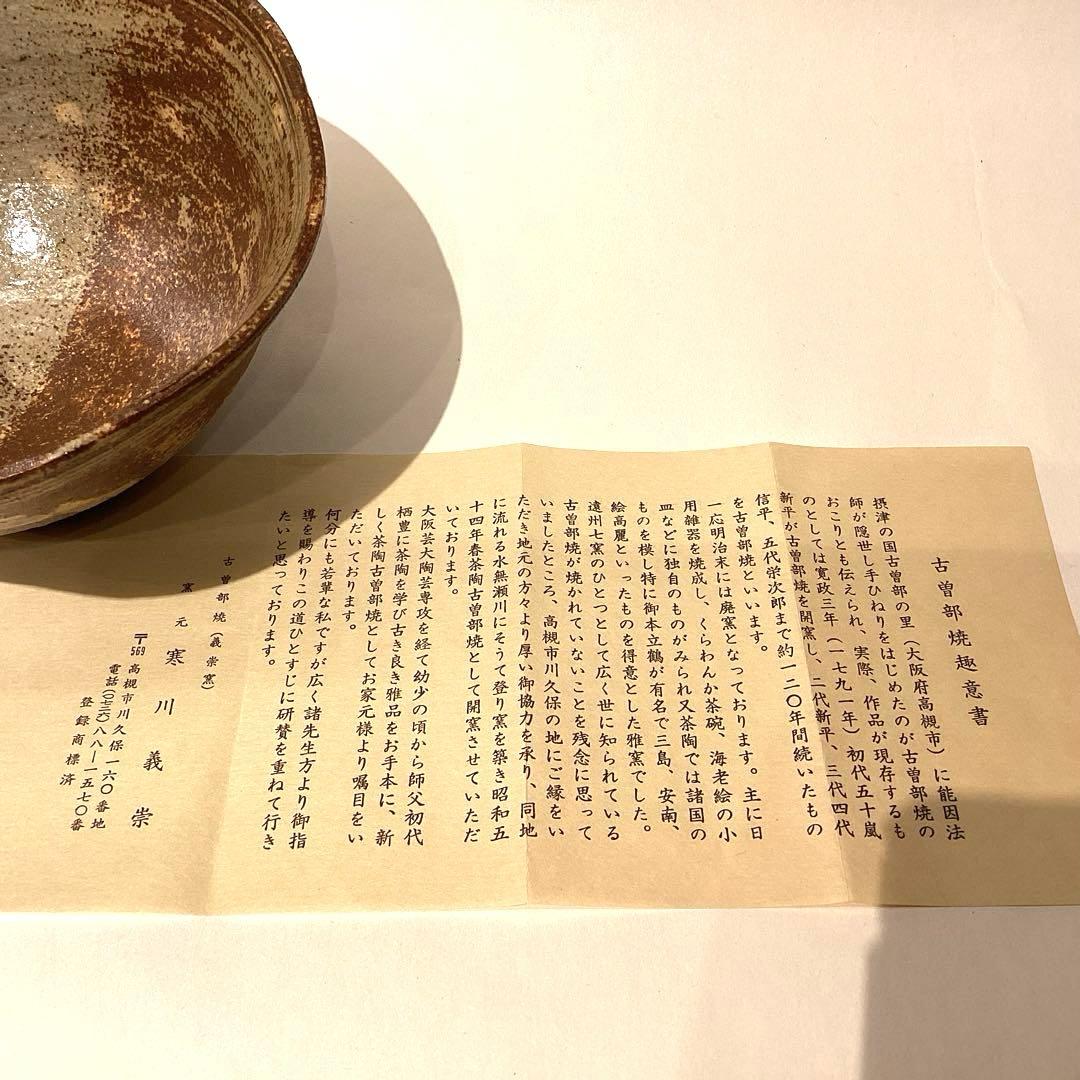 古曽部焼趣意書
摂津の国古曽部の里（大阪府高槻市）に能因法
師が隠世し手ひねりをはじめたのが古曽部焼の
おこりとも伝えられ、実際、作品が現存するも
のとしては寛政三年（一七九一年）初代五十嵐
新平が古曽部焼を開窯し、二代新平、三代四代
信平、五代栄次郎まで約一二〇年間続いたもの
を古曽部焼といいます。
一応明治末には廃窯となっております。主に日
用雑器を焼成し、くらわんか茶碗、海老絵の小
皿などに独自のものがみられ又茶陶では諸国の
ものを模し特に御本立鶴が有名で三島、安南、
絵高麗といったものを得意とした雅窯でした。
遠州七窯のひとつとして広く世に知られている
古曽部焼が焼かれていないことを残念に思って
いましたところ、高槻市川久保の地にご縁をい
ただき地元の方々より厚い御協力を承り、同地
に流れる水無瀬川にそうて登り窯を築き昭和五
十四年春茶陶古曽部焼として開窯させていただ
いております。
大阪芸大陶芸専攻を経て幼少の頃から師父初代
栖豊に茶陶を学び古き良き雅品をお手本に、新
しく茶陶古曽部焼としてお家元様より嘱目をい
ただいております。
何分にも若輩な私ですが広く諸先生方より御指
導を賜わりこの道ひとすじに研賛を重ねて行き
たいと思っております。
古曽部焼（義崇窯）
窯元 寒川義崇
〒569 高槻市川久保一六〇番地
電話（〇七二六）八八―一五七〇番
登録商標済